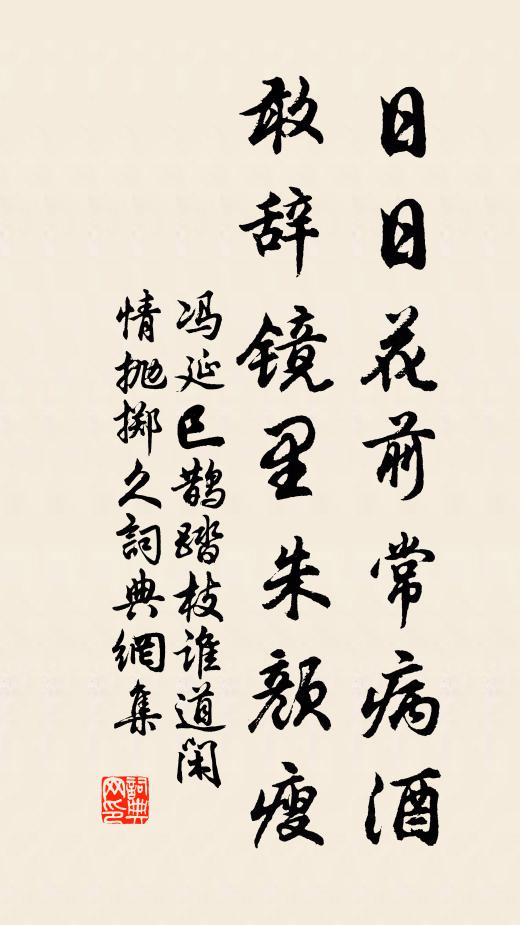 日日花前常病酒
敢辞镜里朱颜瘦
冯延巳鹊踏枝谁道闲
情抛掷久詞典網集
詞典
网印